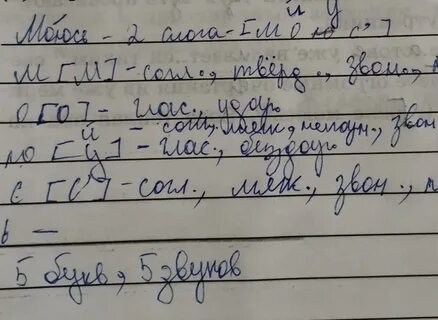 Моюсь - 2 слога - [М О й у С']
М [М] - согл., твёрд., звон.,
О [О] - глас., удар.
ю й - согл., мягк., непарн., звон
[У] - глас., безудар.
С [С'] - согл., мягк., звон.,
ь —
5 букв, 5 звуков